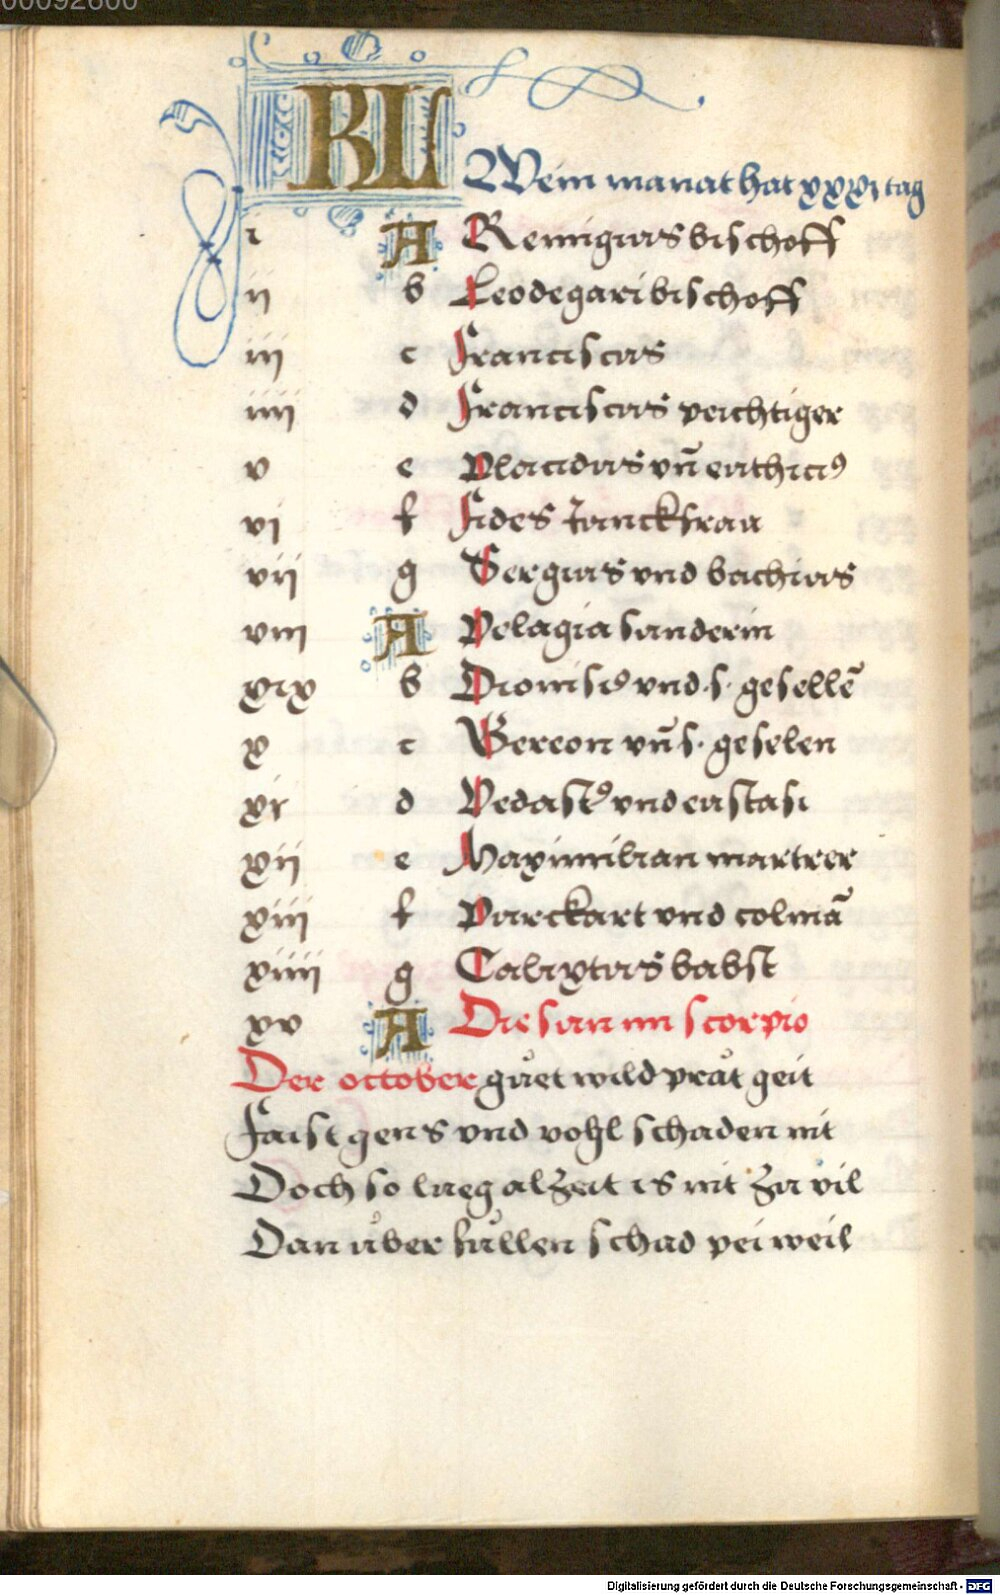 00092600
KL Wein manat hat xxxi tag
i A Remigius bischoff
ii b Leodegari bischoff
iii c Franciscus
iiii d Franciscus peichtiger
v e Placidus vñ euthici⁹
vi f Fides junckfrau
vii g Sergius vnd bachius
viii A Pelagia sunderin
xix b Dionisi⁹ vnd ·s· gesellē
x c Gereon vñ s· geselen
xi d Vedast⁹ vnd eustasi
xii e Maximilian martrer
xiii f Purckart vnd colmā
xiiii g Calixtus babst
xv A Die sun im scorpio
Der october guͦet wild praͤt geit
Faist gens vnd vohl schaden nit
Doch so lueg alzeit is nit zu vil
Dan uͤber fuͤllen schad pei weil
Digitalisierung gefördert durch die Deutsche Forschungsgemeinschaft - DFG